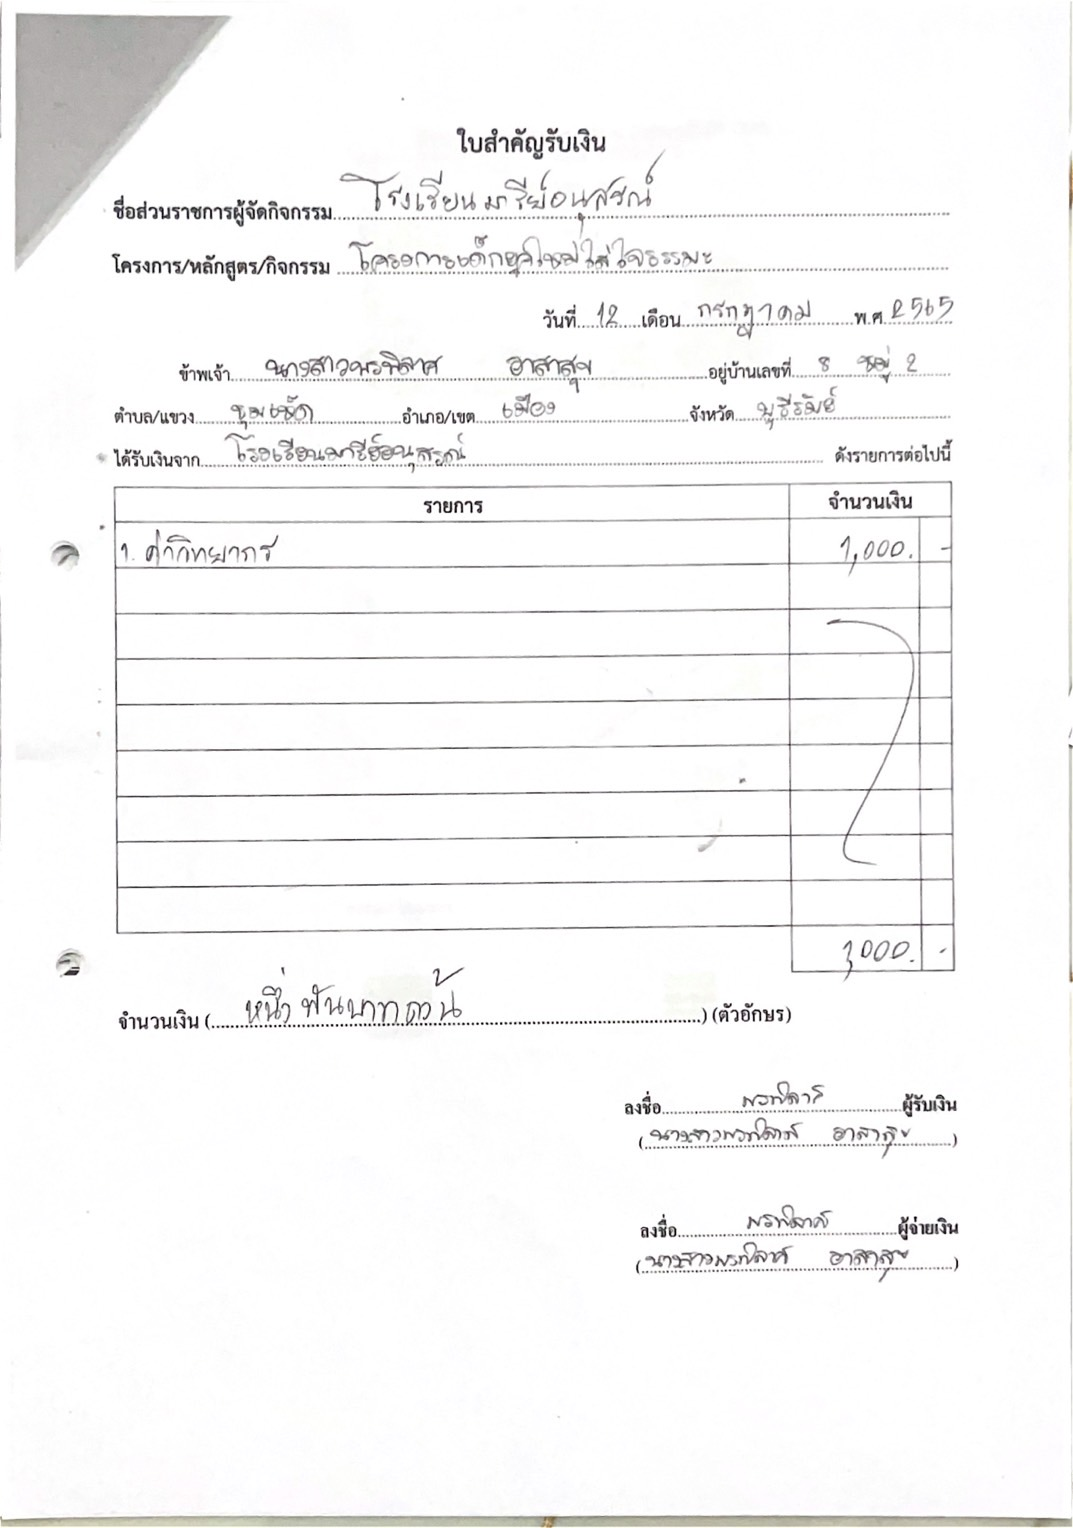 ใบสำคัญรับเงิน
ชื่อส่วนราชการผู้จัดกิจกรรม โรงเรียนมารีย์อนุสรณ์
โครงการ/หลักสูตร/กิจกรรม โครงการเด็กยุคใหม่ใส่ใจธรรมะ
วันที่ 12 เดือน กรกฎาคม พ.ศ 2565
ข้าพเจ้า นางสาวพรพิลาศ อาสาสุข อยู่บ้านเลขที่ 8 หมู่ 2
ตำบล/แขวง ชุมเห็ด อำเภอ/เขต เมือง จังหวัด บุรีรัมย์
ได้รับเงินจาก โรงเรียนมารีย์อนุสรณ์ ดังรายการต่อไปนี้
รายการ จำนวนเงิน
1. ค่าวิทยากร 1,000. -
1,000. -
จำนวนเงิน (หนึ่งพันบาทถ้วน) (ตัวอักษร)
ลงชื่อ พรพิลาศ ผู้รับเงิน
(นางสาวพรพิลาศ อาสาสุข)
ลงชื่อ พรพิลาศ ผู้จ่ายเงิน
(นางสาวพรพิลาศ อาสาสุข)